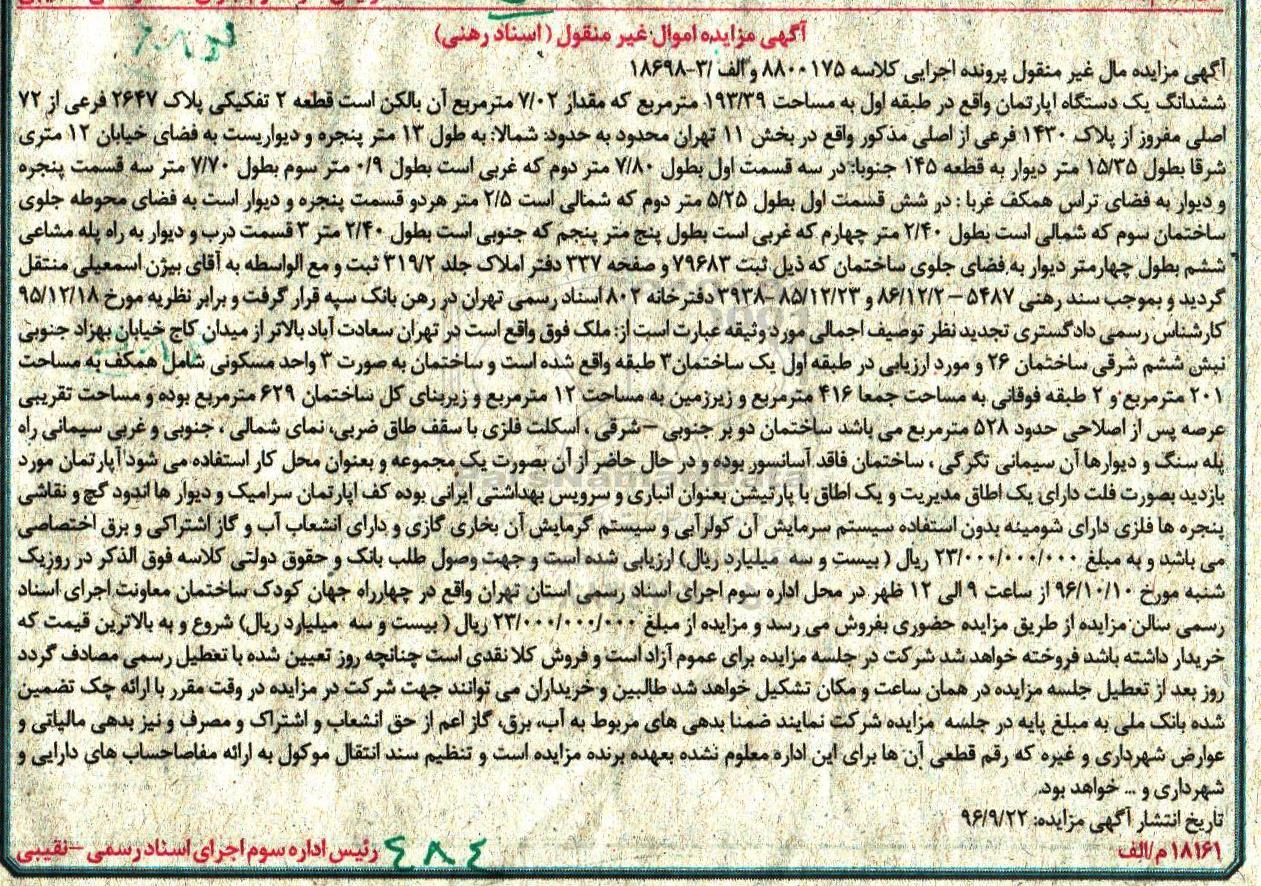 آگهی مزایده اموال غیر منقول (اسناد رهنی)
آگهی مزایده مال غیر منقول پرونده اجرایی کلاسه ۸۸۰۰۱۷۵ و الف /۳-۱۸۶۹۸
ششدانگ یک دستگاه اپارتمان واقع در طبقه اول به مساحت ۱۹۳/۳۹ مترمربع که مقدار ۷/۰۲ مترمربع آن بالکن است قطعه ۲ تفکیکی پلاک ۲۶۴۷ فرعی از ۷۲
اصلی مفروز از پلاک ۱۴۳۰ فرعی از اصلی مذکور واقع در بخش ۱۱ تهران محدود به حدود: شمالا: به طول ۱۳ متر پنجره و دیواریست به فضای خیابان ۱۲ متری
شرقا بطول ۱۵/۳۵ متر دیوار به قطعه ۱۴۵ جنوبا: در سه قسمت اول بطول ۷/۸۰ متر دوم که غربی است بطول ۰/۹ متر سوم بطول ۷/۷۰ متر سه قسمت پنجره
و دیوار به فضای تراس همکف غربا : در شش قسمت اول بطول ۵/۲۵ متر دوم که شمالی است ۲/۵ متر هردو قسمت پنجره و دیوار است به فضای محوطه جلوی
ساختمان سوم که شمالی است بطول ۲/۴۰ متر چهارم که غربی است بطول پنج متر پنجم که جنوبی است بطول ۲/۴۰ متر ۳ قسمت درب و دیوار به راه پله مشاعی
ششم بطول چهارمتر دیوار به فضای جلوی ساختمان که ذیل ثبت ۷۹۶۸۳ و صفحه ۳۳۷ دفتر املاک جلد ۳۱۹/۲ ثبت و مع الواسطه به آقای بیژن اسمعیلی منتقل
گردید و بموجب سند رهنی ۵۴۸۷ – ۸۶/۱۲/۲ و ۸۵/۱۲/۲۳ -۳۹۳۸ دفترخانه ۸۰۲ اسناد رسمی تهران در رهن بانک سپه قرار گرفت و برابر نظریه مورخ ۹۵/۱۲/۱۸
کارشناس رسمی دادگستری تجدید نظر توصیف اجمالی مورد وثیقه عبارت است از: ملک فوق واقع است در تهران سعادت آباد بالاتر از میدان کاج خیابان بهزاد جنوبی
نبش ششم شرقی ساختمان ۲۶ و مورد ارزیابی در طبقه اول یک ساختمان ۳ طبقه واقع شده است و ساختمان به صورت ۳ واحد مسکونی شامل همکف به مساحت
۲۰۱ مترمربع و ۲ طبقه فوقانی به مساحت جمعا ۴۱۶ مترمربع و زیرزمین به مساحت ۱۲ مترمربع و زیربنای کل ساختمان ۶۲۹ مترمربع بوده و مساحت تقریبی
عرصه پس از اصلاحی حدود ۵۲۸ مترمربع می باشد ساختمان دو بر جنوبی –شرقی ، اسکلت فلزی با سقف طاق ضربی، نمای شمالی ، جنوبی و غربی سیمانی راه
پله سنگ و دیوارها آن سیمانی تگرگی ، ساختمان فاقد آسانسور بوده و در حال حاضر از آن بصورت یک مجموعه و بعنوان محل کار استفاده می شود آپارتمان مورد
بازدید بصورت فلت دارای یک اطاق مدیریت و یک اطاق با پارتیشن بعنوان انباری و سرویس بهداشتی ایرانی بوده کف اپارتمان سرامیک و دیوار ها اندود گچ و نقاشی
پنجره ها فلزی دارای شومینه بدون استفاده سیستم سرمایش آن کولرآبی و سیستم گرمایش آن بخاری گازی و دارای انشعاب آب و گاز اشتراکی و برق اختصاصی
می باشد و به مبلغ ۲۳/۰۰۰/۰۰۰/۰۰۰ ریال ( بیست و سه میلیارد ریال) ارزیابی شده است و جهت وصول طلب بانک و حقوق دولتی کلاسه فوق الذکر در روزیک
شنبه مورخ ۹۶/۱۰/۱۰ از ساعت ۹ الی ۱۲ ظهر در محل اداره سوم اجرای اسناد رسمی استان تهران واقع در چهارراه جهان کودک ساختمان معاونت اجرای اسناد
رسمی سالن مزایده از طریق مزایده حضوری بفروش می رسد و مزایده از مبلغ ۲۳/۰۰۰/۰۰۰/۰۰۰ ریال ( بیست و سه میلیارد ریال) شروع و به بالاترین قیمت که
خریدار داشته باشد فروخته خواهد شد شرکت در جلسه مزایده برای عموم آزاد است و فروش کلا نقدی است چنانچه روز تعیین شده با تعطیل رسمی مصادف گردد
روز بعد از تعطیل جلسه مزایده در همان ساعت و مکان تشکیل خواهد شد طالبین و خریداران می توانند جهت شرکت در مزایده در وقت مقرر با ارائه چک تضمین
شده بانک ملی به مبلغ پایه در جلسه مزایده شرکت نمایند ضمنا بدهی های مربوط به آب، برق، گاز اعم از حق انشعاب و اشتراک و مصرف و نیز بدهی مالیاتی و
عوارض شهرداری و غیره که رقم قطعی آن ها برای این اداره معلوم نشده بعهده برنده مزایده است و تنظیم سند انتقال موکول به ارائه مفاصاحساب های دارایی و
شهرداری و ... خواهد بود.
تاریخ انتشار آگهی مزایده: ۹۶/۹/۲۲
۱۸۱۶۱ م/الف
رئیس اداره سوم اجرای اسناد رسمی –نقیبی
۴۸۴